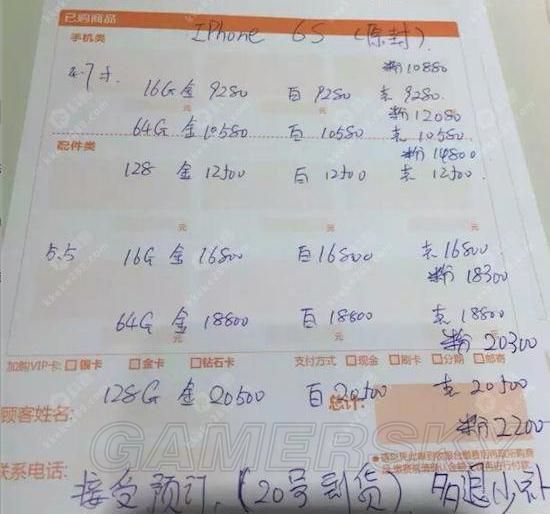 已购商品
手机类 IPhone 6S (原封).
粉 10880
4.7寸
16G 金 9280 白 9280 灰 9280
粉 12080
64G 金 10580 白 10580 灰 10580
配件类 粉 14800
128 金 12500 白 12500 灰 12500
元 元
5.5 16G 金 16800 白 16800 灰 16800
粉 18300
64G 金 18800 白 18800 灰 18800
粉 20300
加购VIP卡: 银卡 金卡 钻石卡 支付方式 现金 刷卡 分期 邮寄
128G 金 20500 白 20500 灰 20500
顾客姓名: 总计:
粉 2200
联系电话:
接受预订. (20号到货) 多退少补
GAMERSKY